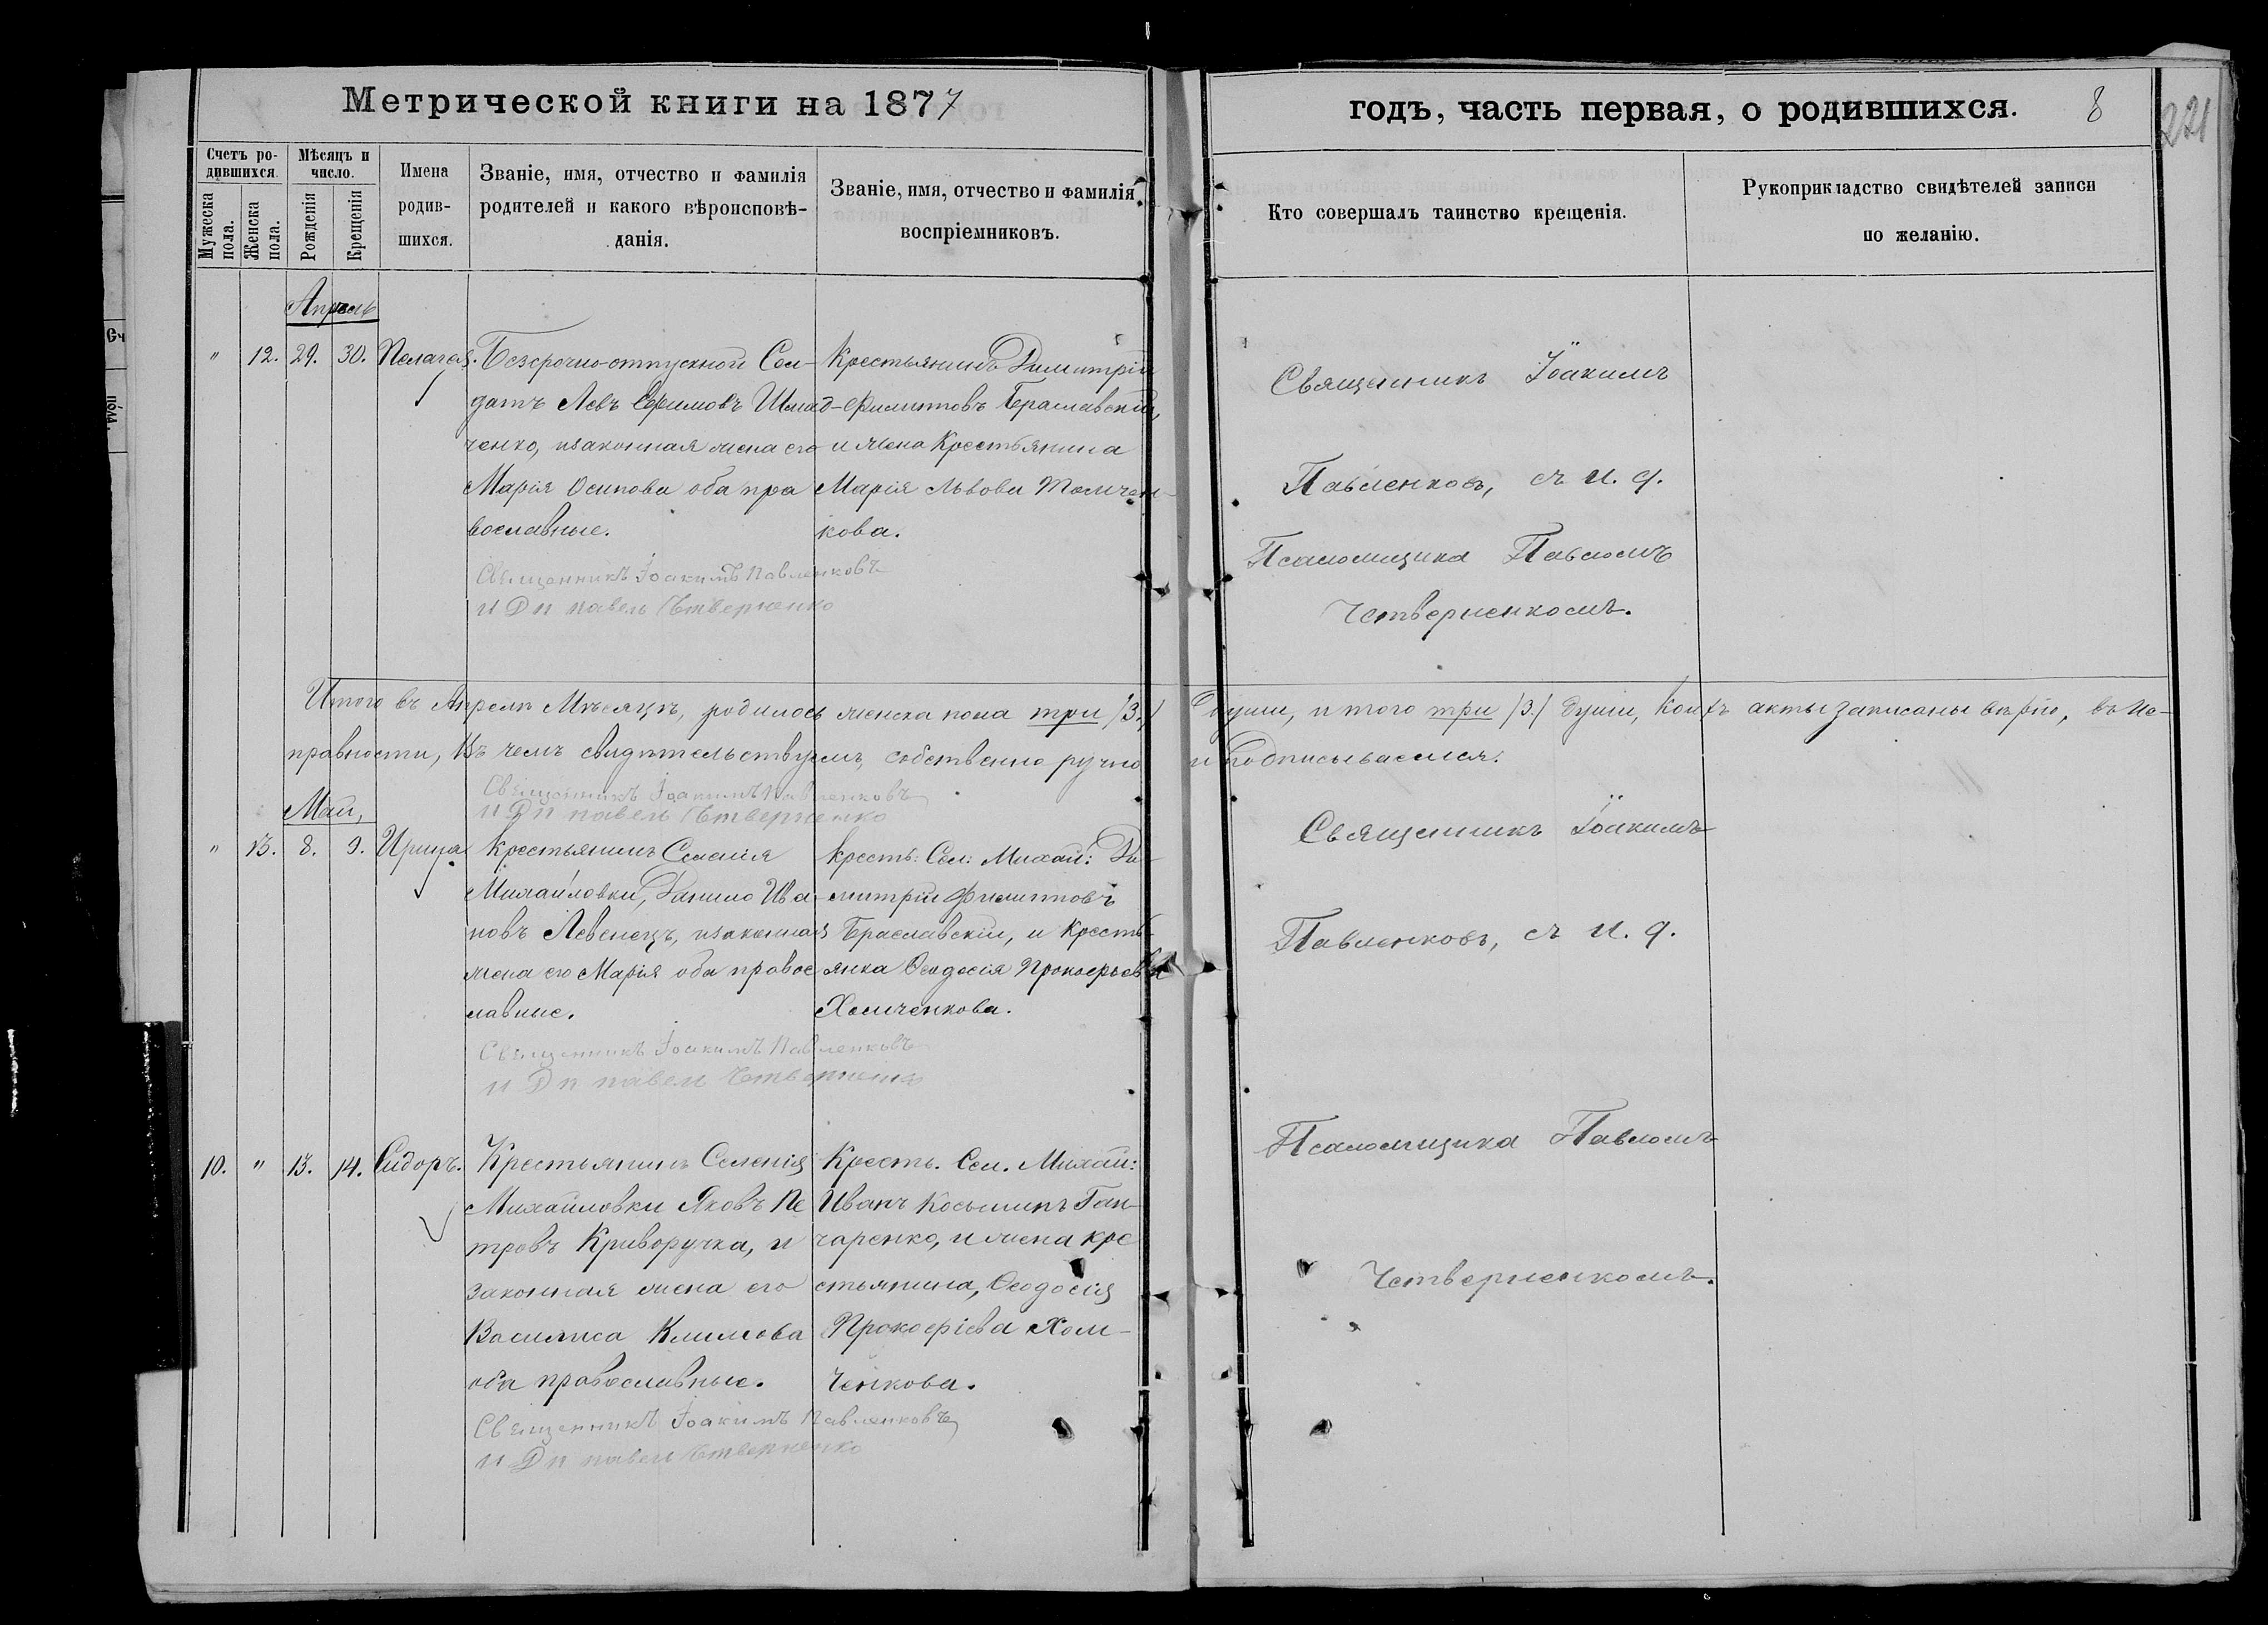 Метрической книги на 1877
годъ, часть первая, о родившихся. 8
221
Счетъ ро-
дившихся.
Мѣсяцъ и
число.
Мужеска
пола.
Женска
пола.
Рожденія
Крещенія
Имена
родив-
шихся.
Званіе, имя, отчество и фамилія
родителей и какого вѣроисповѣ-
данія.
Званіе, имя, отчество и фамилія
воспріемниковъ.
Кто совершалъ таинство крещенія.
Рукоприкладство свидѣтелей записи
по желанію.
Апрель
" 12. 29. 30. Пелагея.
Безсрочно-отпускной Сол-
датъ Левъ Ефимовъ
ченко, изаконная жена его
Марія Осипова оба пра
вославные.
Священникъ Іоакимъ Павленковъ
и Дп павелъ Четверненко
Крестьянинъ Димитрій
Филиповъ Браславскій,
и жена Крестьянина
Марія Львова
кова.
Священникъ Іоакимъ
Павленковъ, съ и. д.
Псаломщика Павломъ
Четверненкомъ.
Итого въ Апрелѣ Мѣсяцѣ, родилось женска пола три /3./ души, итого три /3./ души, Коихъ акты записаны вѣрно, въ ис-
правности, Въ чемъ свидѣтельствуемъ, собственно ручно и подписываемся.
Священникъ Іоакимъ Павленковъ
и Дп павелъ Четверненко
Май,
" 13. 8. 9. Ирина
Крестьянинъ Селенія
Михайловки, Данило Ива
новъ Левенецъ, изаконная
жена его Марія оба правос
лавные.
Священникъ Іоакимъ Павленковъ
и Дп павелъ Четверненко
кресть: Сел: Михай: Ди-
митрій Филиповъ
Браславскій, и Кресть-
янка Ѳеодосія Прокофьева
Хомченкова.
Священникъ Іоакимъ
Павленковъ, съ и. д.
Псаломщика Павломъ
Четверненкомъ.
10. " 13. 14. Сидоръ.
Крестьянинъ Селенія
Михайловки Яковъ Пе
тровъ Криворучка, и
законная жена его
Василиса Климова
оба православные.
Священникъ Іоакимъ Павленковъ
и Дп павелъ Четверненко
Кресть. Сел. Михай:
Иванъ Косьминъ Ган-
чаренко, и жена кре
стьянина, Ѳеодосія
Прокофіева Хом-
ченкова.